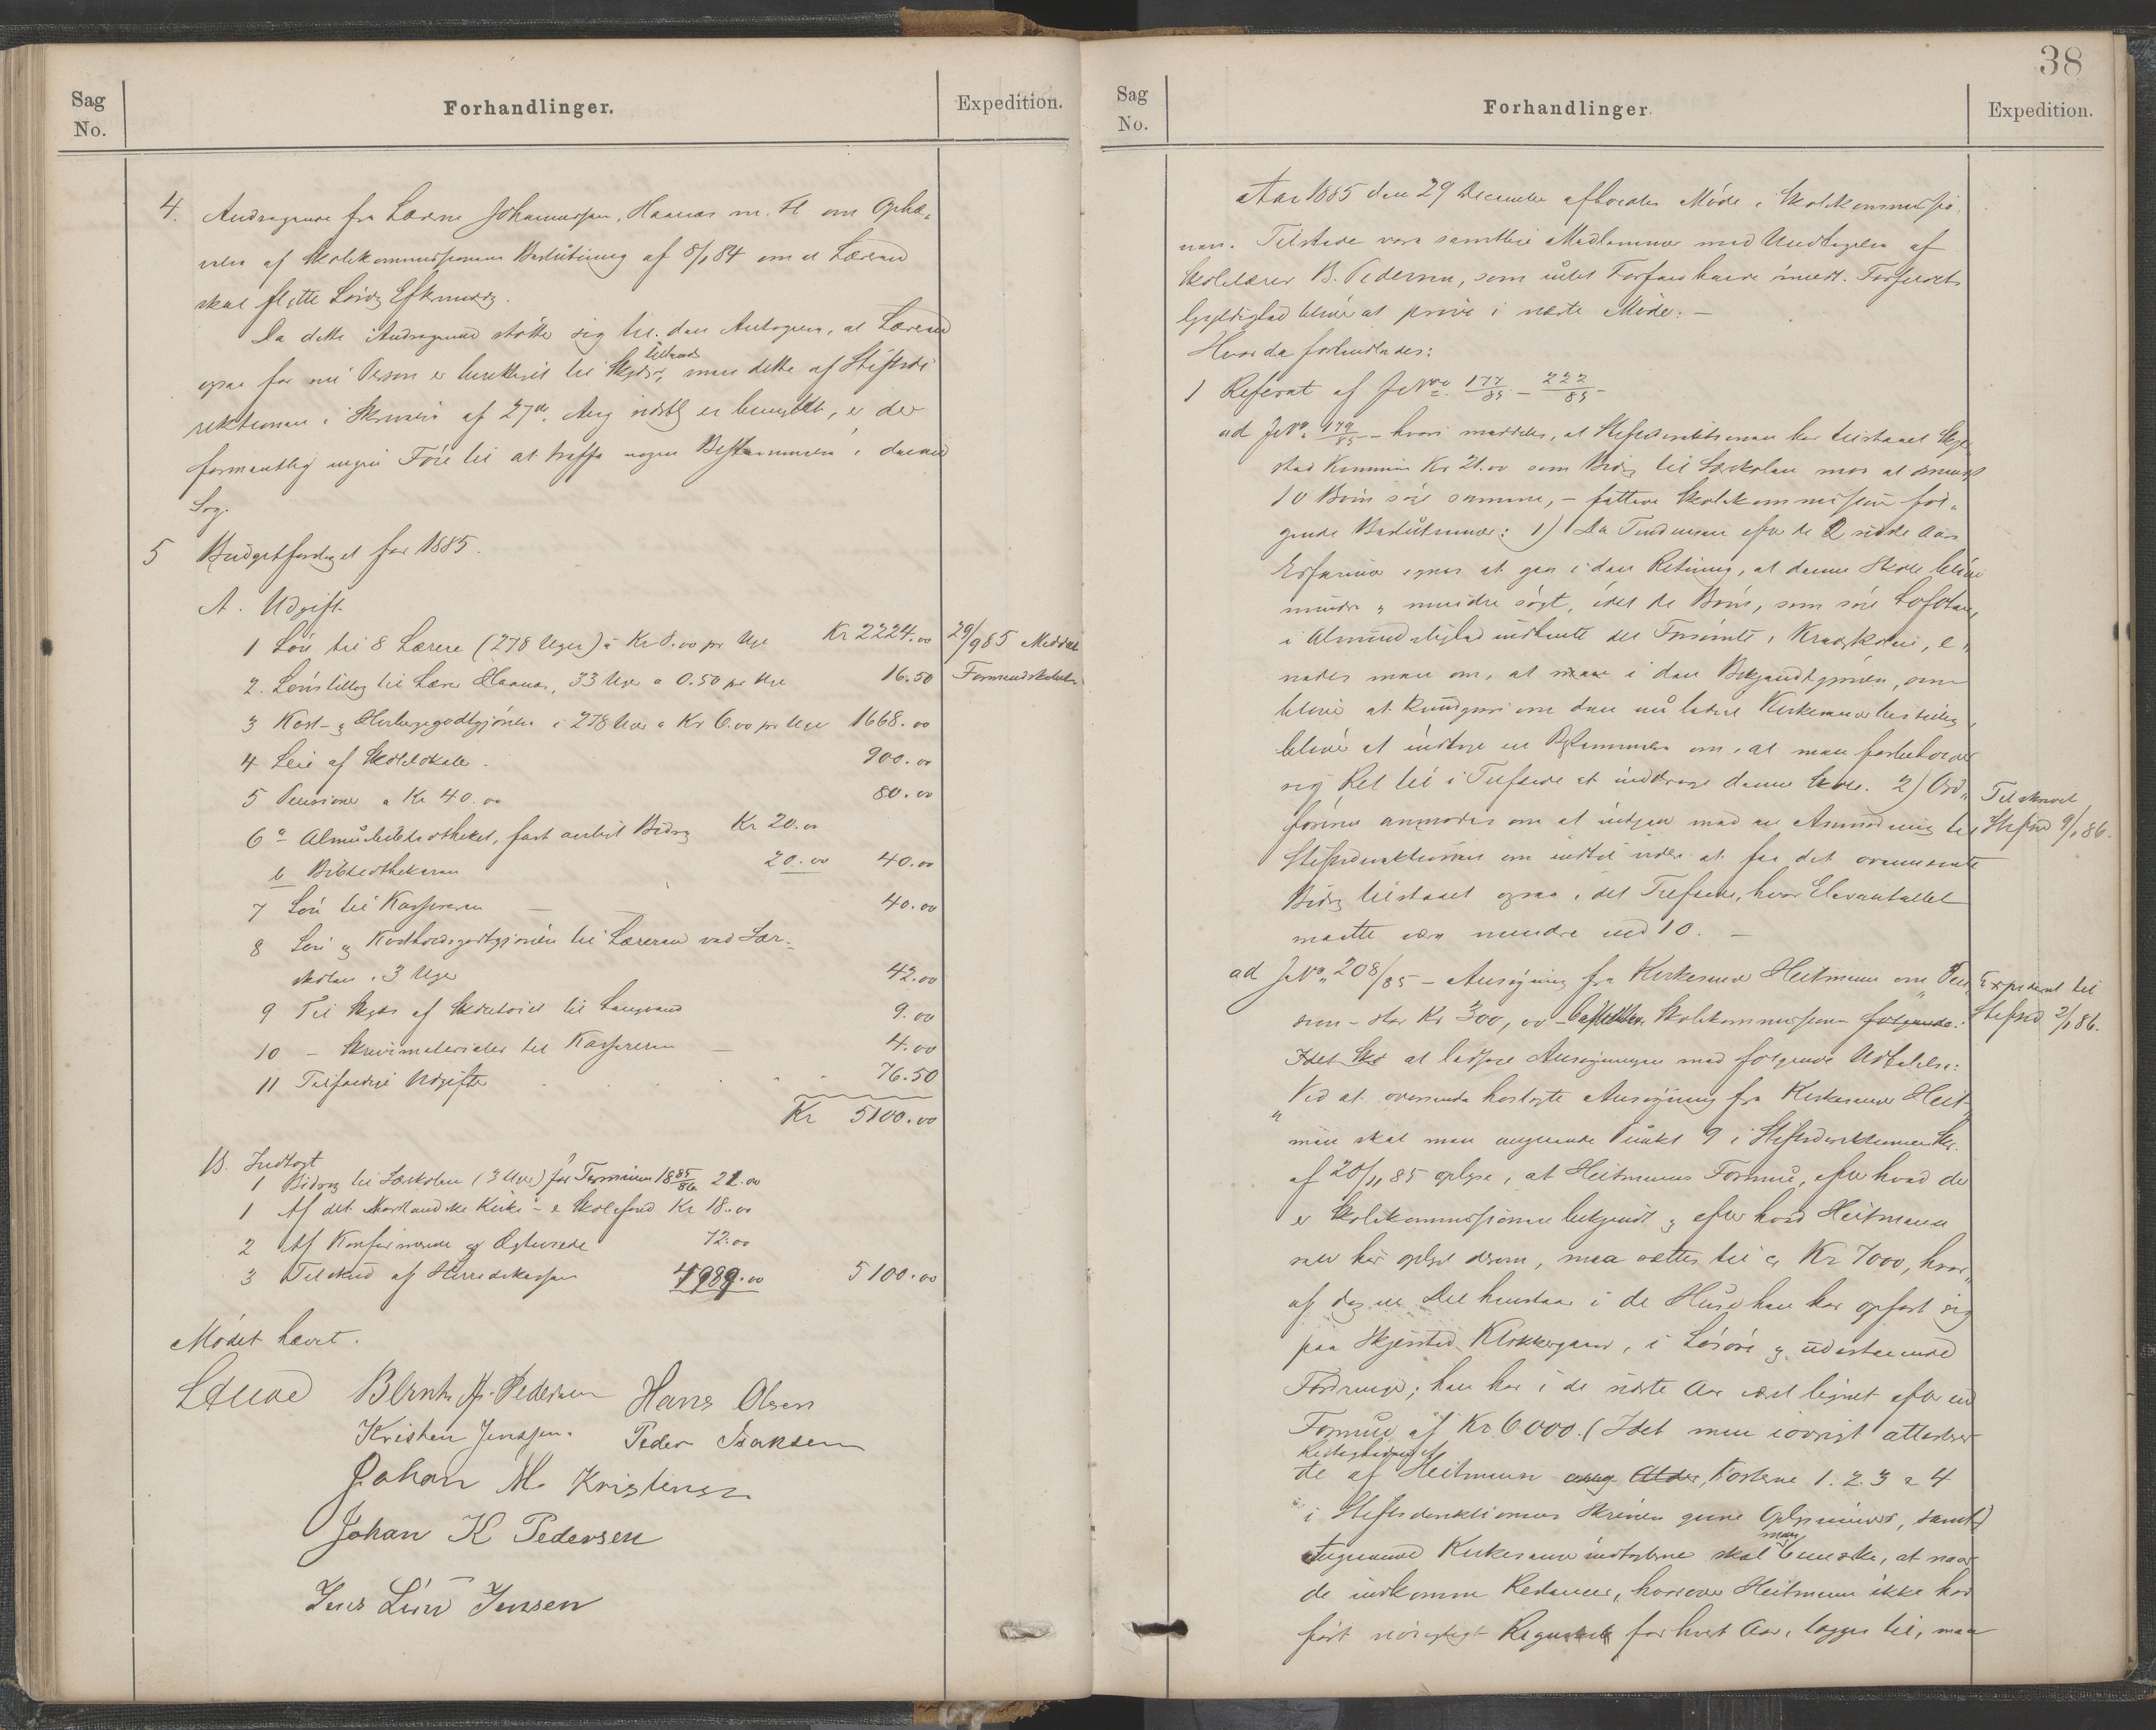 Sag
No.
Forhandlinger.
Expedition.
4. Andragende fra Lærer Johannessen, Haanes m. fl. om Ophæ-
velse af Skolekommissionens Beslutning af 5/1 84 om at Læreren
skal flytte Lørdag Eftermiddag.
Da dette Andragende støtter sig til den Antagelse, at Læreren
ogsaa for sin Person er berettiget til Skyds, men dette af Stiftsdi-
tillands
rektionen i Skrivelse af 27de Aug er benegtet, er der
formentlig ingen Føie til at træffe nogen Bestemmelse i denne
Sag.
5 Budgetforslaget for 1885.
A. Udgift
1 Løn til 8 Lærere (278 Uger) a Kr 8.00 pr Uge Kr 2224.00
2. Lønstillæg til Lærer Haanes, 33 Uger a 0.50 pr Uge 16.50
3 Kost- og Herbergegodtgjørelse i 278 Uger a Kr 6.00 pr Uge 1668.00
4 Leie af Skolelokale. 900.00
5 Pensioner a Kr 40.00 80.00
6 a Almuebibliotheket, fast aarligt Bidrag Kr 20.00
b Bibliothekaren 20.00 40.00
7 Løn til Kassereren 40.00
8 Løn og Kostholdsgodtgjørelse til Læreren ved Lær-
skolen i 3 Uger 42.00
9 Til Skyds af til Langvand 9.00
10 - Skrivematerialer til Kassereren 4.00
11 Tilfældige Udgifter 76.50
Kr 5100.00
29/9 85 Meddelt
Formandskabet
B. Indtægt
1 Bidrag til Lærskolen (3 Uger) for Terminen 1885/86 21.00
1 Af det Nordlandske Kirke- & Skolefond Kr 18.00
2 Af Konfirmerede og Ægteviede 72.00
3 Tilskud af Herredskassen 4989.00 5100.00
Mødet hævet.
Bernt A. Pedersen Hans Olsen
Kristen Jenssen. Peder Isaksen
Johan M. Kristensen
Johan K Pedersen
Jens Jensen
38
Sag
No.
Forhandlinger.
Expedition.
Aar 1885 den 29 December afholdtes Møde i Skolekommissio-
nen. Tilstede vare samtlige Medlemmer med Undtagelse af
Skolelærer B. Pedersen, som uden Forfald havde Forfaldets
Gyldighed bliver at prøve i næste Møde. —
Hvor da forhandledes:
1 Referat af J No 177/85 - 222/85 -
ad J No 179/85 - hvori meddeles, at Stiftsdirektionen har tilstaaet Skjer-
stad Kommune Kr 21.00 som Bidrag til Lærskolen mod at mindst
10 Børn søge samme, - fattede Skolekommissionen føl-
gende Beslutninger: 1) Da Tendensen efter de 2 sidste Aars
Erfaring synes at gaa i den Retning, at denne Skole bliver
mindre og mindre søgt, idet de Børn, som søge Lofoten,
i Almindelighed indhente det Forsømte i Kredsskolen, e-
nedes man om, at man i den Bekjendtgjørelse, som
bliver at kundgjøre om den nu ledige Kirkesangerbestilling,
bliver at indtage en Bestemmelse om, at man forbeholder
sig Ret til i Tilfælde at inddrage denne Skole. 2) Ord-
føreren anmodes om at indgaa med en Anmodning til
Stiftsdirektionen om indtil videre at faa det ovennævnte
Bidrag tilstaaet ogsaa i det Tilfælde, hvor Elevantallet
maatte være mindre end 10. —
Tilskrevet
Stiftsd 9/1 86.
ad J No 208/85 - Ansøgning fra Kirkesanger Heitmann om Pen-
sion - stor Kr 300,00 - besluttede Skolekommissionen følgende:
Idet Sko at ledsage Ansøgningen med følgende Udtalelse:
Expederet til
Stiftsd 2/1 86.
"Ved at oversende hoslagte Ansøgning fra Kirkesanger Heit-
mann skal man angaaende Punkt 9 i Stiftsdirektionens Skr.
af 20/11 85 oplyse, at Heitmanns Formue, efter hvad der
er Skolekommissionen bekjendt og efter hvad Heitmann
selv har oplyst derom, maa sættes til ca Kr 7000, hvor-
af dog en Del henstaar i de Huse han har opført sig
paa Skjerstad Klokkergaard, i Løsøre og udestaaende
Fordringer; han har i de sidste Aar været lignet efter en
Formue af Kr 6000. (Idet man iøvrigt attesterer
Rigtigheden af
de af Heitmann ang. Alder, Posterne 1. 2. 3 & 4
i Stiftsdirektionens Skrivelse givne Oplysninger, samt)
Angaaende Kirkesangerindtægterne skal man bemærke, at naar
de indkomne Redancer, hvorover Heitmann ikke har
ført nøiagtigt Regnskab for hvert Aar, lægges til, maa